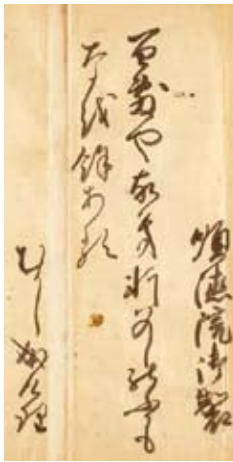 順徳院御製
百敷やふるき軒はのしのふにも
なを餘りある
むかし成けり